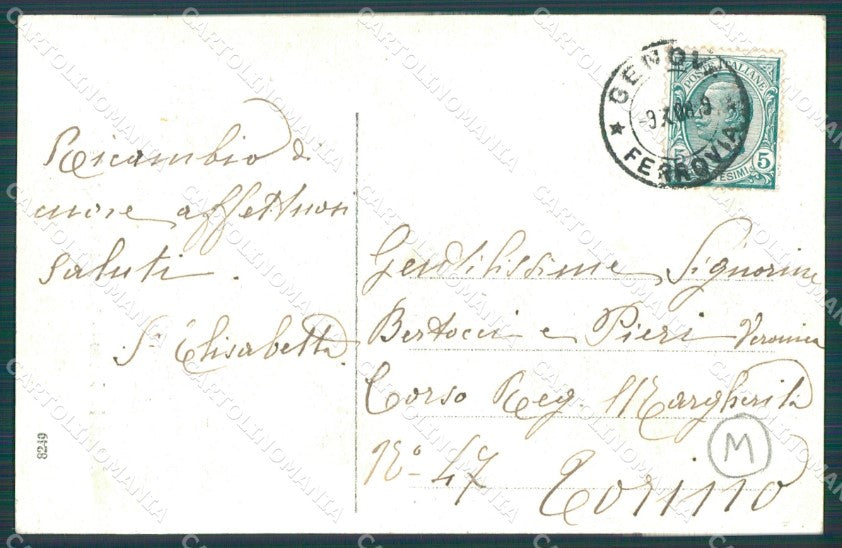 Ricambio di
cuore affettuosi
saluti.
S. Elisabetta
GENOLA
FERROVIA
POSTE ITALIANE
5 5
Gentilissime Signorine
Bertocci e Pieri Veronica
Corso Reg Margherita
No 47
Torino
M
8249
CARTOLINOMANIA